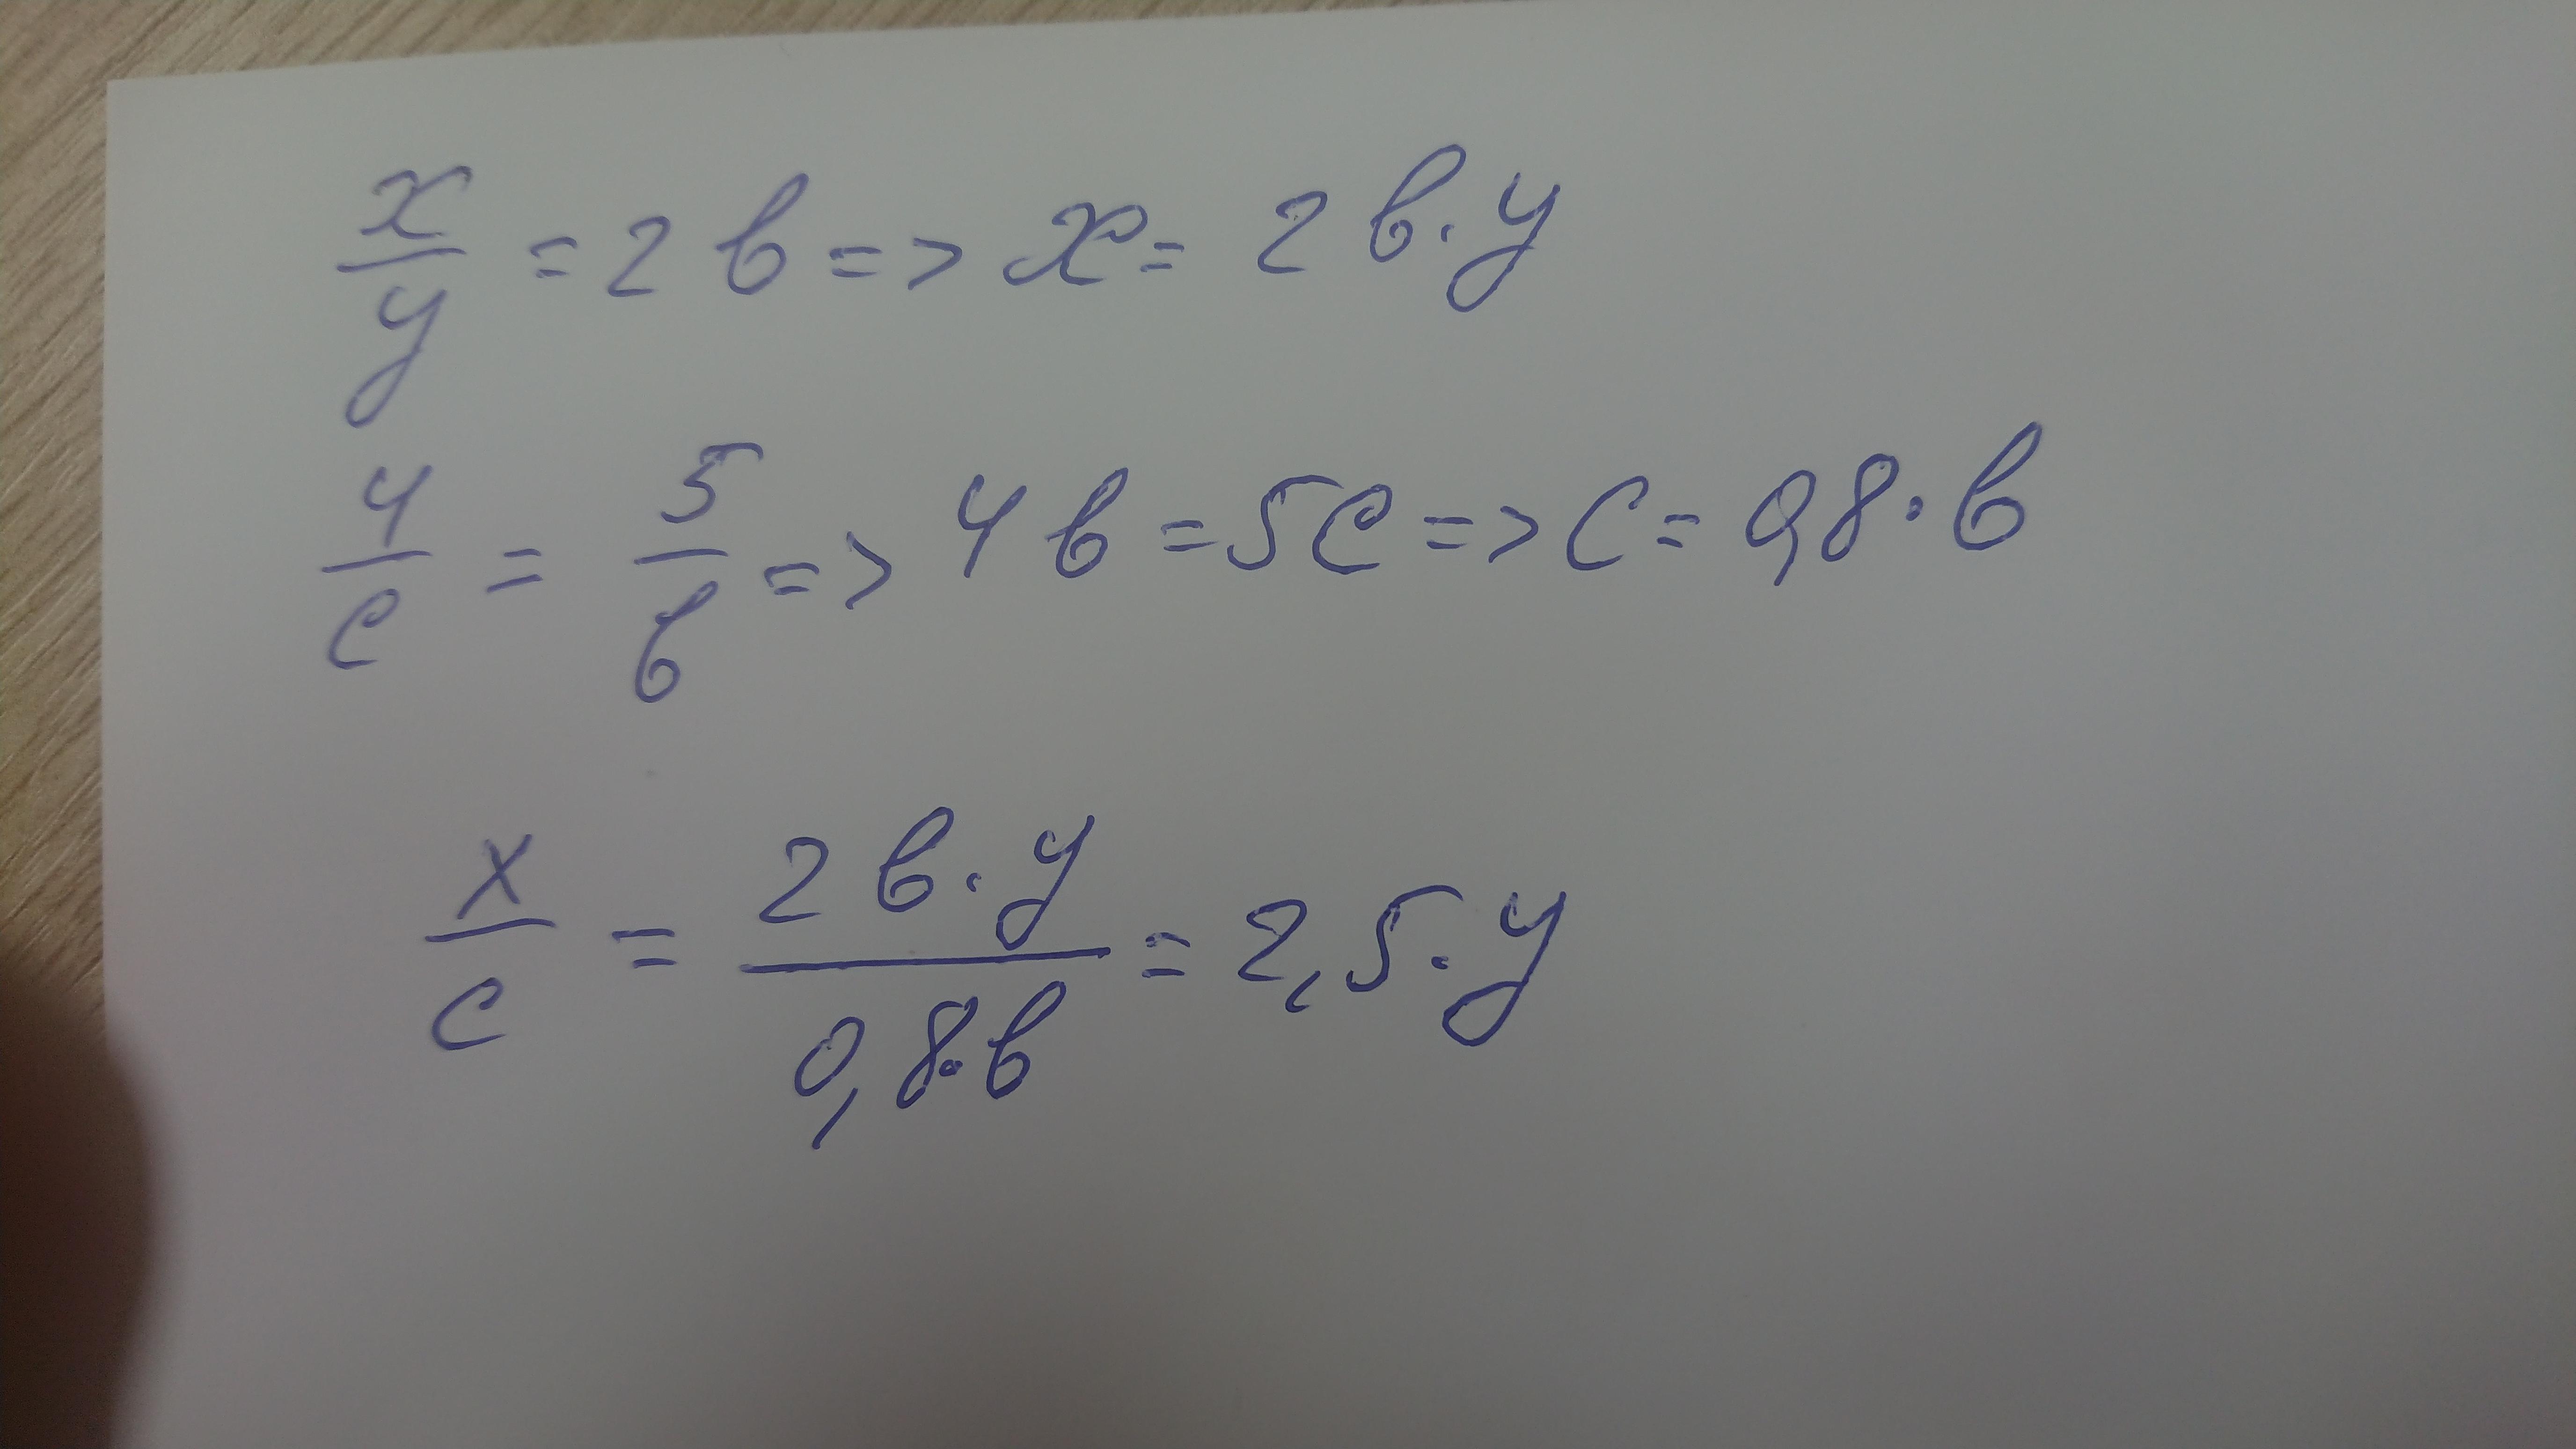 x/y = 2b => x = 2b·y
4/c = 5/b => 4b = 5c => c = 0,8·b
x/c = 2b·y/0,8·b = 2,5·y